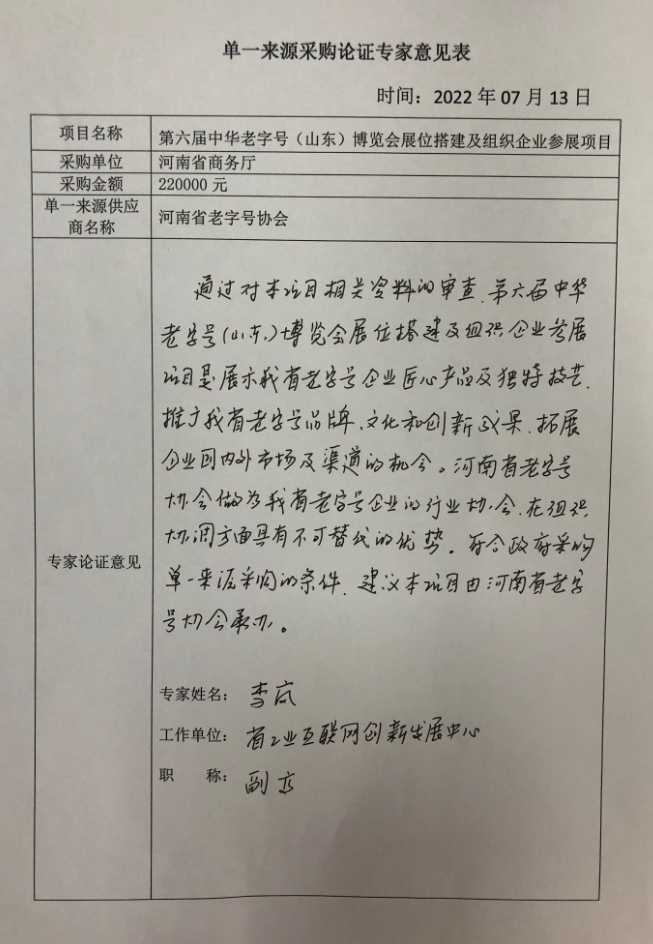 单一来源采购论证专家意见表
时间：2022 年 07 月 13 日
项目名称 第六届中华老字号（山东）博览会展位搭建及组织企业参展项目
采购单位 河南省商务厅
采购金额 220000 元
单一来源供应
商名称 河南省老字号协会
专家论证意见
通过对本项目相关资料的审查，第六届中华
老字号(山东)博览会展位搭建及组织企业参展
项目是展示我省老字号企业匠心产品及独特技艺，
推广我省老字号品牌、文化和创新成果，拓展
企业国内外市场及渠道的机会。河南省老字号
协会做为我省老字号企业的行业协会，在组织
协调方面具有不可替代的优势。符合政府采购
单一来源采购的条件，建议本项目由河南省老字
号协会承办。
专家姓名： 李岚
工作单位： 省工业互联网创新发展中心
职 称： 副高